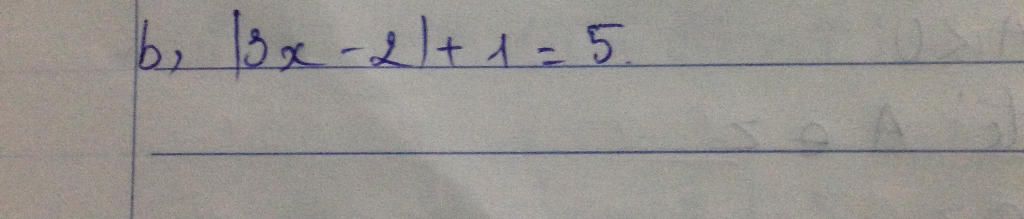 b, |3x - 2| + 1 = 5.